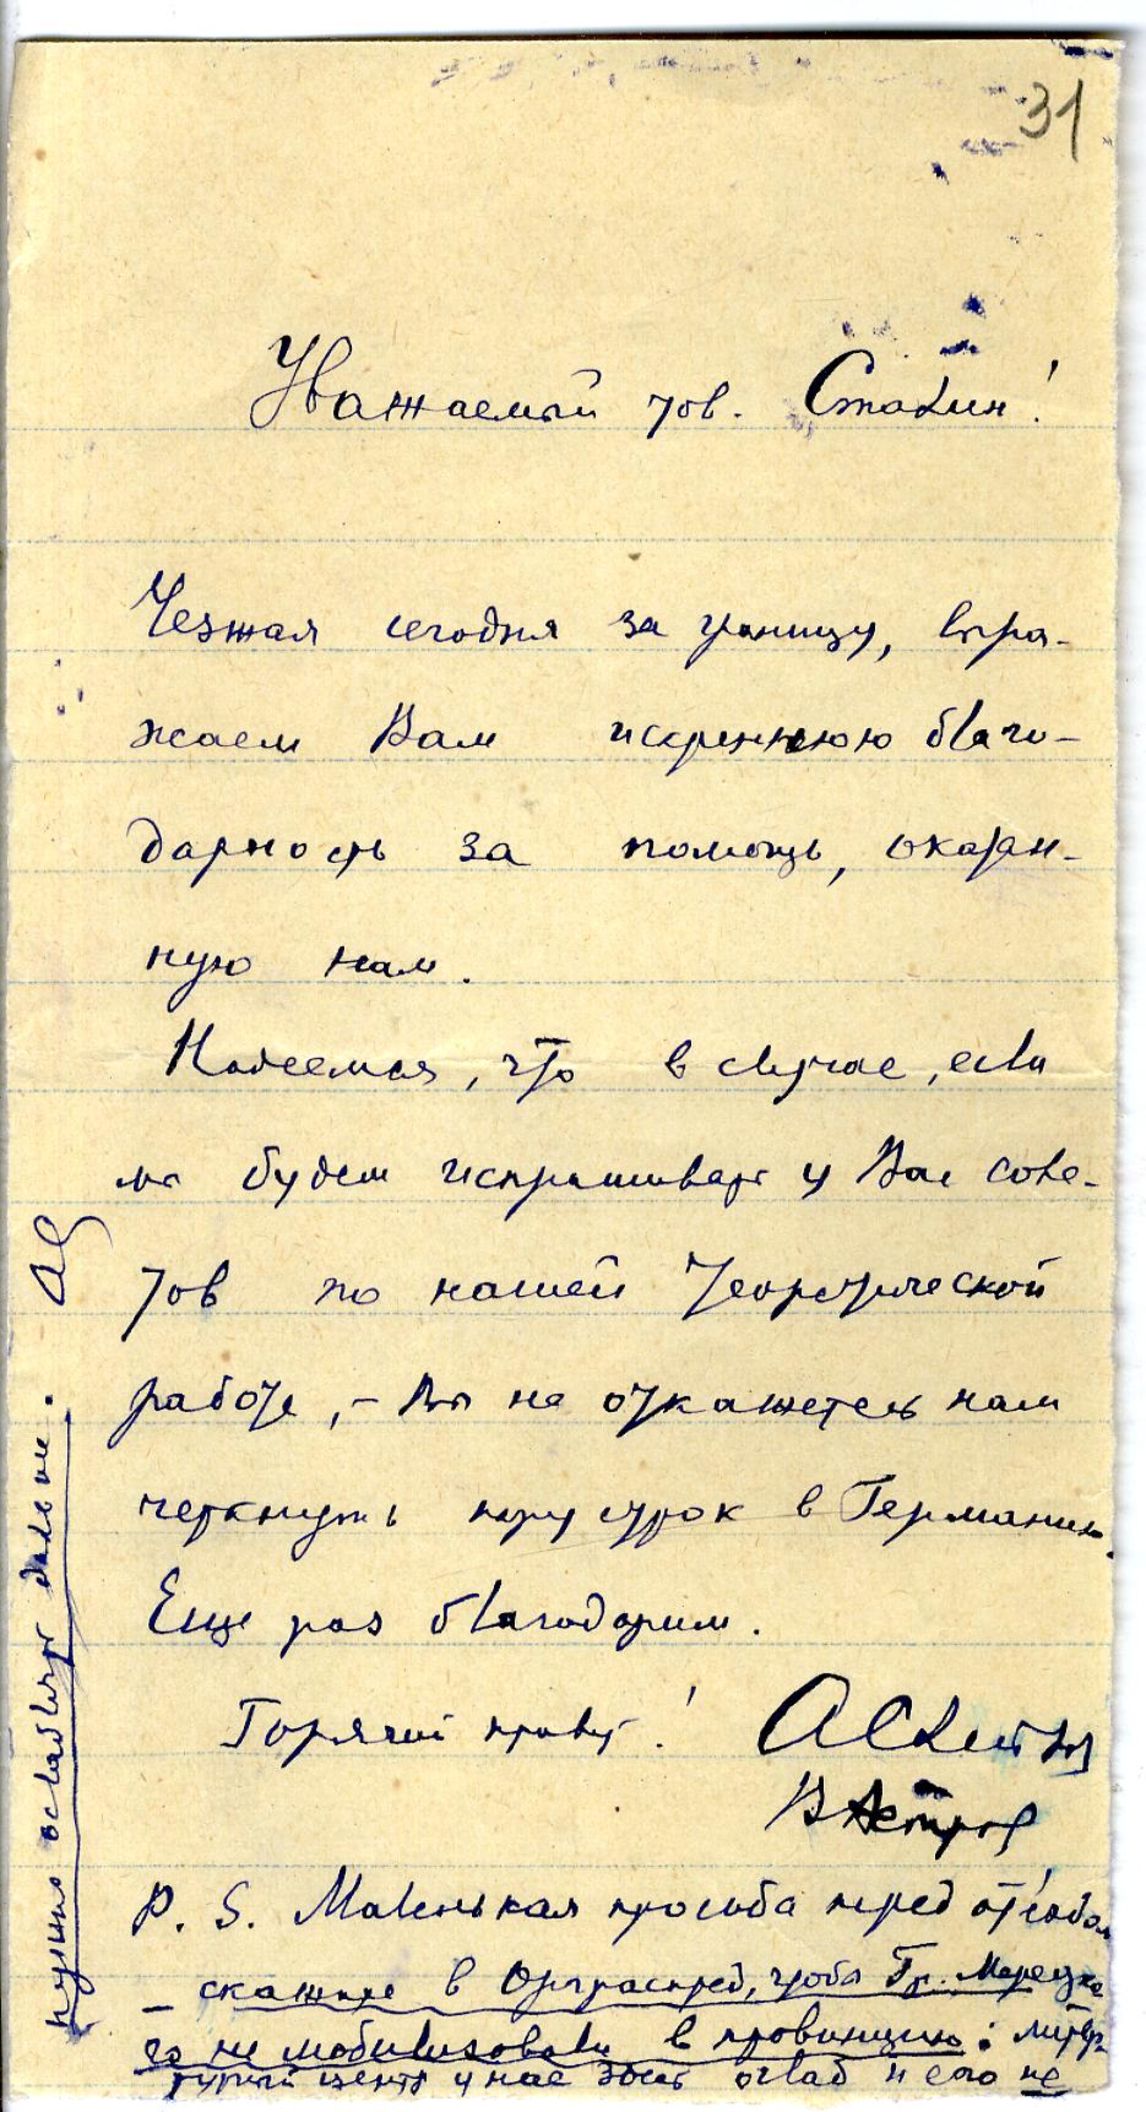 31
Уважаемый тов. Сталин!
Уезжая сегодня за границу, выра-
жаем Вам искреннюю благо-
дарность за помощь, оказан-
ную нам.
Надеемся, что в случае, если
мы будем испрашивать у Вас сове-
тов по нашей теоретической
работе, – Вы не откажетесь нам
черкнуть пару строк в Германию.
Еще раз благодарим.
Горячий привет! АСлепков
ВАстров
P. S. Маленькая просьба перед от'ездом
– скажите в Орграспред, чтобы Гр. Марецко
го не мобилизовали в провинцию: литер
турный центр у нас здесь ослаб и его не
нужно ослаблять дальше. АС